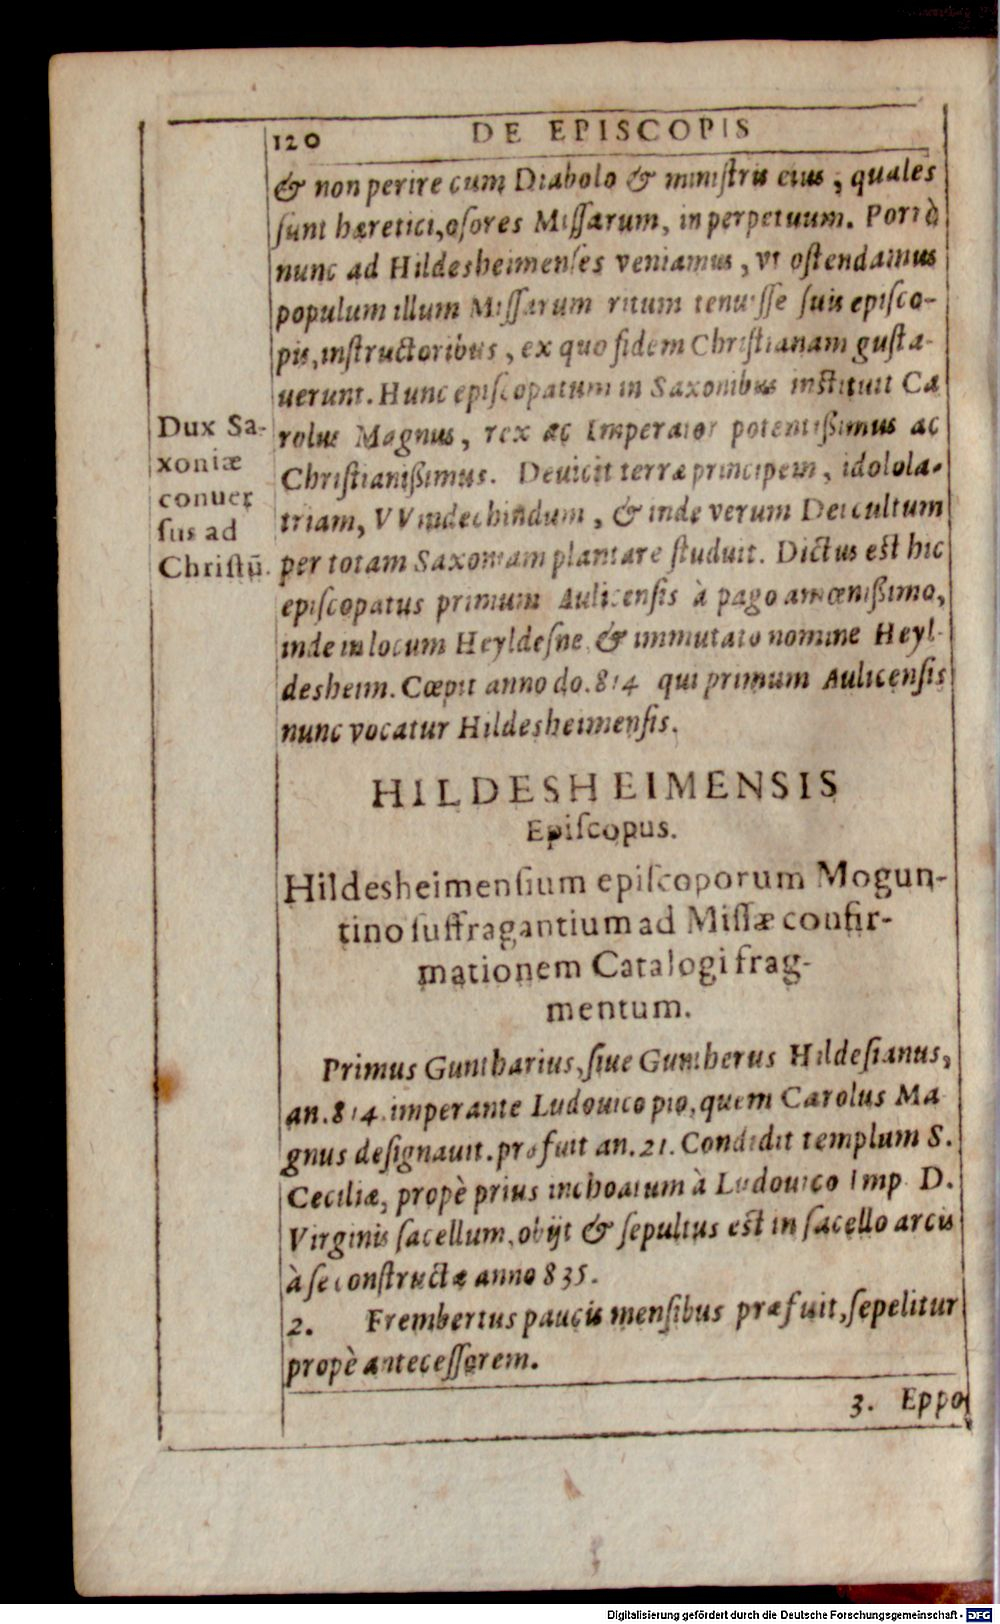 120 DE EPISCOPIS
& non perire cum Diabolo & ministris eius, quales
sunt hæretici, osores Missarum, in perpetuum. Porrò
nunc ad Hildesheimenses veniamus, vt ostendamus
populum illum Missarum ritum tenuisse suis episco-
pis, instructoribus, ex quo fidem Christianam gusta-
uerunt. Hunc episcopatum in Saxonibus instituit Ca
rolus Magnus, rex ac Imperator potentißimus ac
Christianißimus. Deuicit terræ principem, idolola-
triam, VVindechindum, & inde verum Dei cultum
per totam Saxoniam plantare studuit. Dictus est hic
episcopatus primum Aulicensis à pago amœnißimo,
inde in locum Heyldesne, & immutato nomine Heyl-
desheim. Cœpit anno do. 814 qui primum Aulicensis
nunc vocatur Hildesheimensis.
Dux Sa-
xoniæ
conuer
sus ad
Christū.
HILDESHEIMENSIS
Episcopus.
Hildesheimensium episcoporum Mogun-
tino suffragantium ad Missæ confir-
mationem Catalogi frag-
mentum.
Primus Guntharius, siue Gumherus Hildesianus,
an. 814. imperante Ludouico pio, quem Carolus Ma
gnus designauit. profuit an. 21. Condidit templum S.
Ceciliæ, propè prius inchoatum à Ludouico Imp. D.
Virginis sacellum, obijt & sepultus est in sacello arcis
à se constructæ anno 835.
2. Frembertus paucis mensibus præfuit, sepelitur
propè antecessorem.
3. Eppo
Digitalisierung gefördert durch die Deutsche Forschungsgemeinschaft - DFG